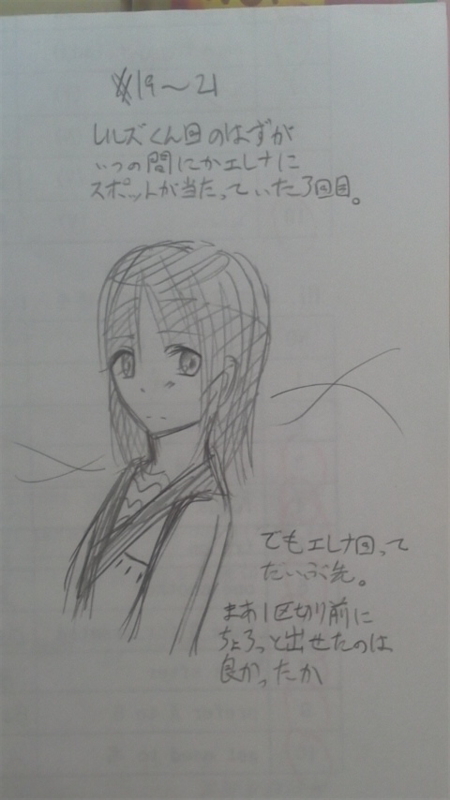 ※19～21
レルズくん回のはずが
いつの間にかエレナに
スポットが当たっていた3回目。
でもエレナ回って
だいぶ先。
まあ1区切り前に
ちょろっと出せたのは
良かったか